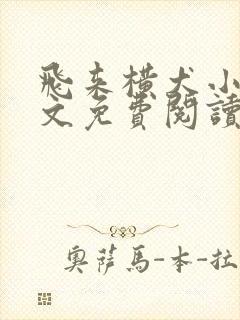 飛来横犬小
文免費閱讀
奧薩馬-本-拉